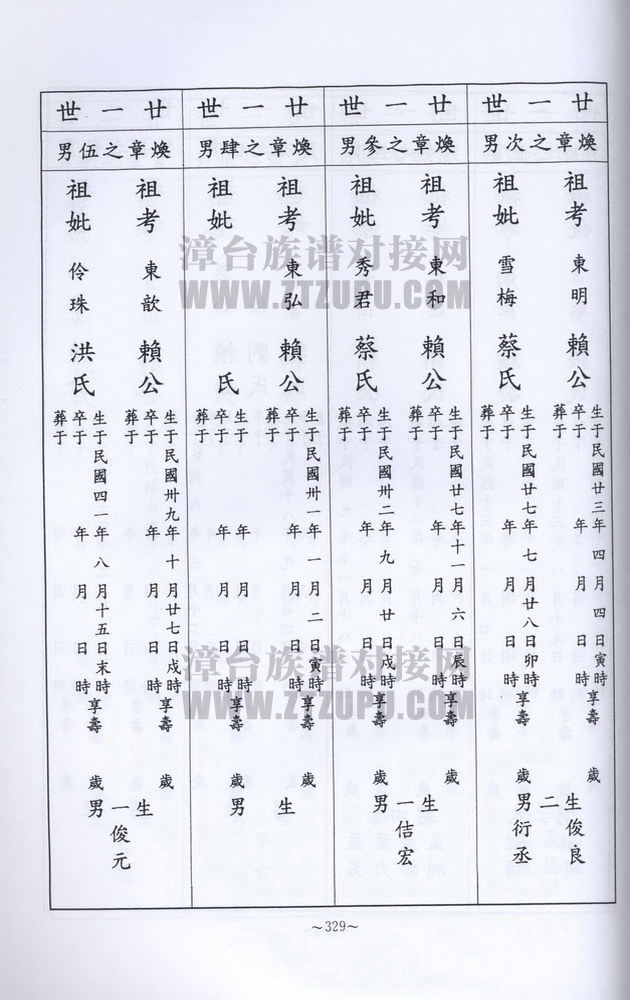 廿一世
煥章之次男
祖考 東明 賴公
生于民國廿三年四月四日寅時享壽 歲
卒于 年 月 日 時
葬于
祖妣 雪梅 蔡氏
生于民國廿七年七月廿八日卯時享壽
卒于 年 月 日 時
葬于
生二男
俊良
衍丞
廿一世
煥章之參男
祖考 東和 賴公
生于民國廿七年十一月六日辰時享壽 歲
卒于 年 月 日 時
葬于
祖妣 秀君 蔡氏
生于民國卅二年九月廿日戌時享壽 歲
卒于 年 月 日 時
葬于
生一男
佶宏
廿一世
煥章之肆男
祖考 東弘 賴公
生于民國卅一年一月二日寅時享壽 歲
卒于 年 月 日 時
葬于
祖妣 氏
生于 年 月 日 時享壽 歲
卒于 年 月 日 時
葬于
生 男
廿一世
煥章之伍男
祖考 東歆 賴公
生于民國卅九年十月廿七日戌時享壽 歲
卒于 年 月 日 時
葬于
祖妣 伶珠 洪氏
生于民國四一年八月十五日末時享壽 歲
卒于 年 月 日 時
葬于
生一男
俊元
漳台族谱对接网
WWW.ZTZUPU.COM
漳台族谱对接网
WWW.ZTZUPU.COM
~329~